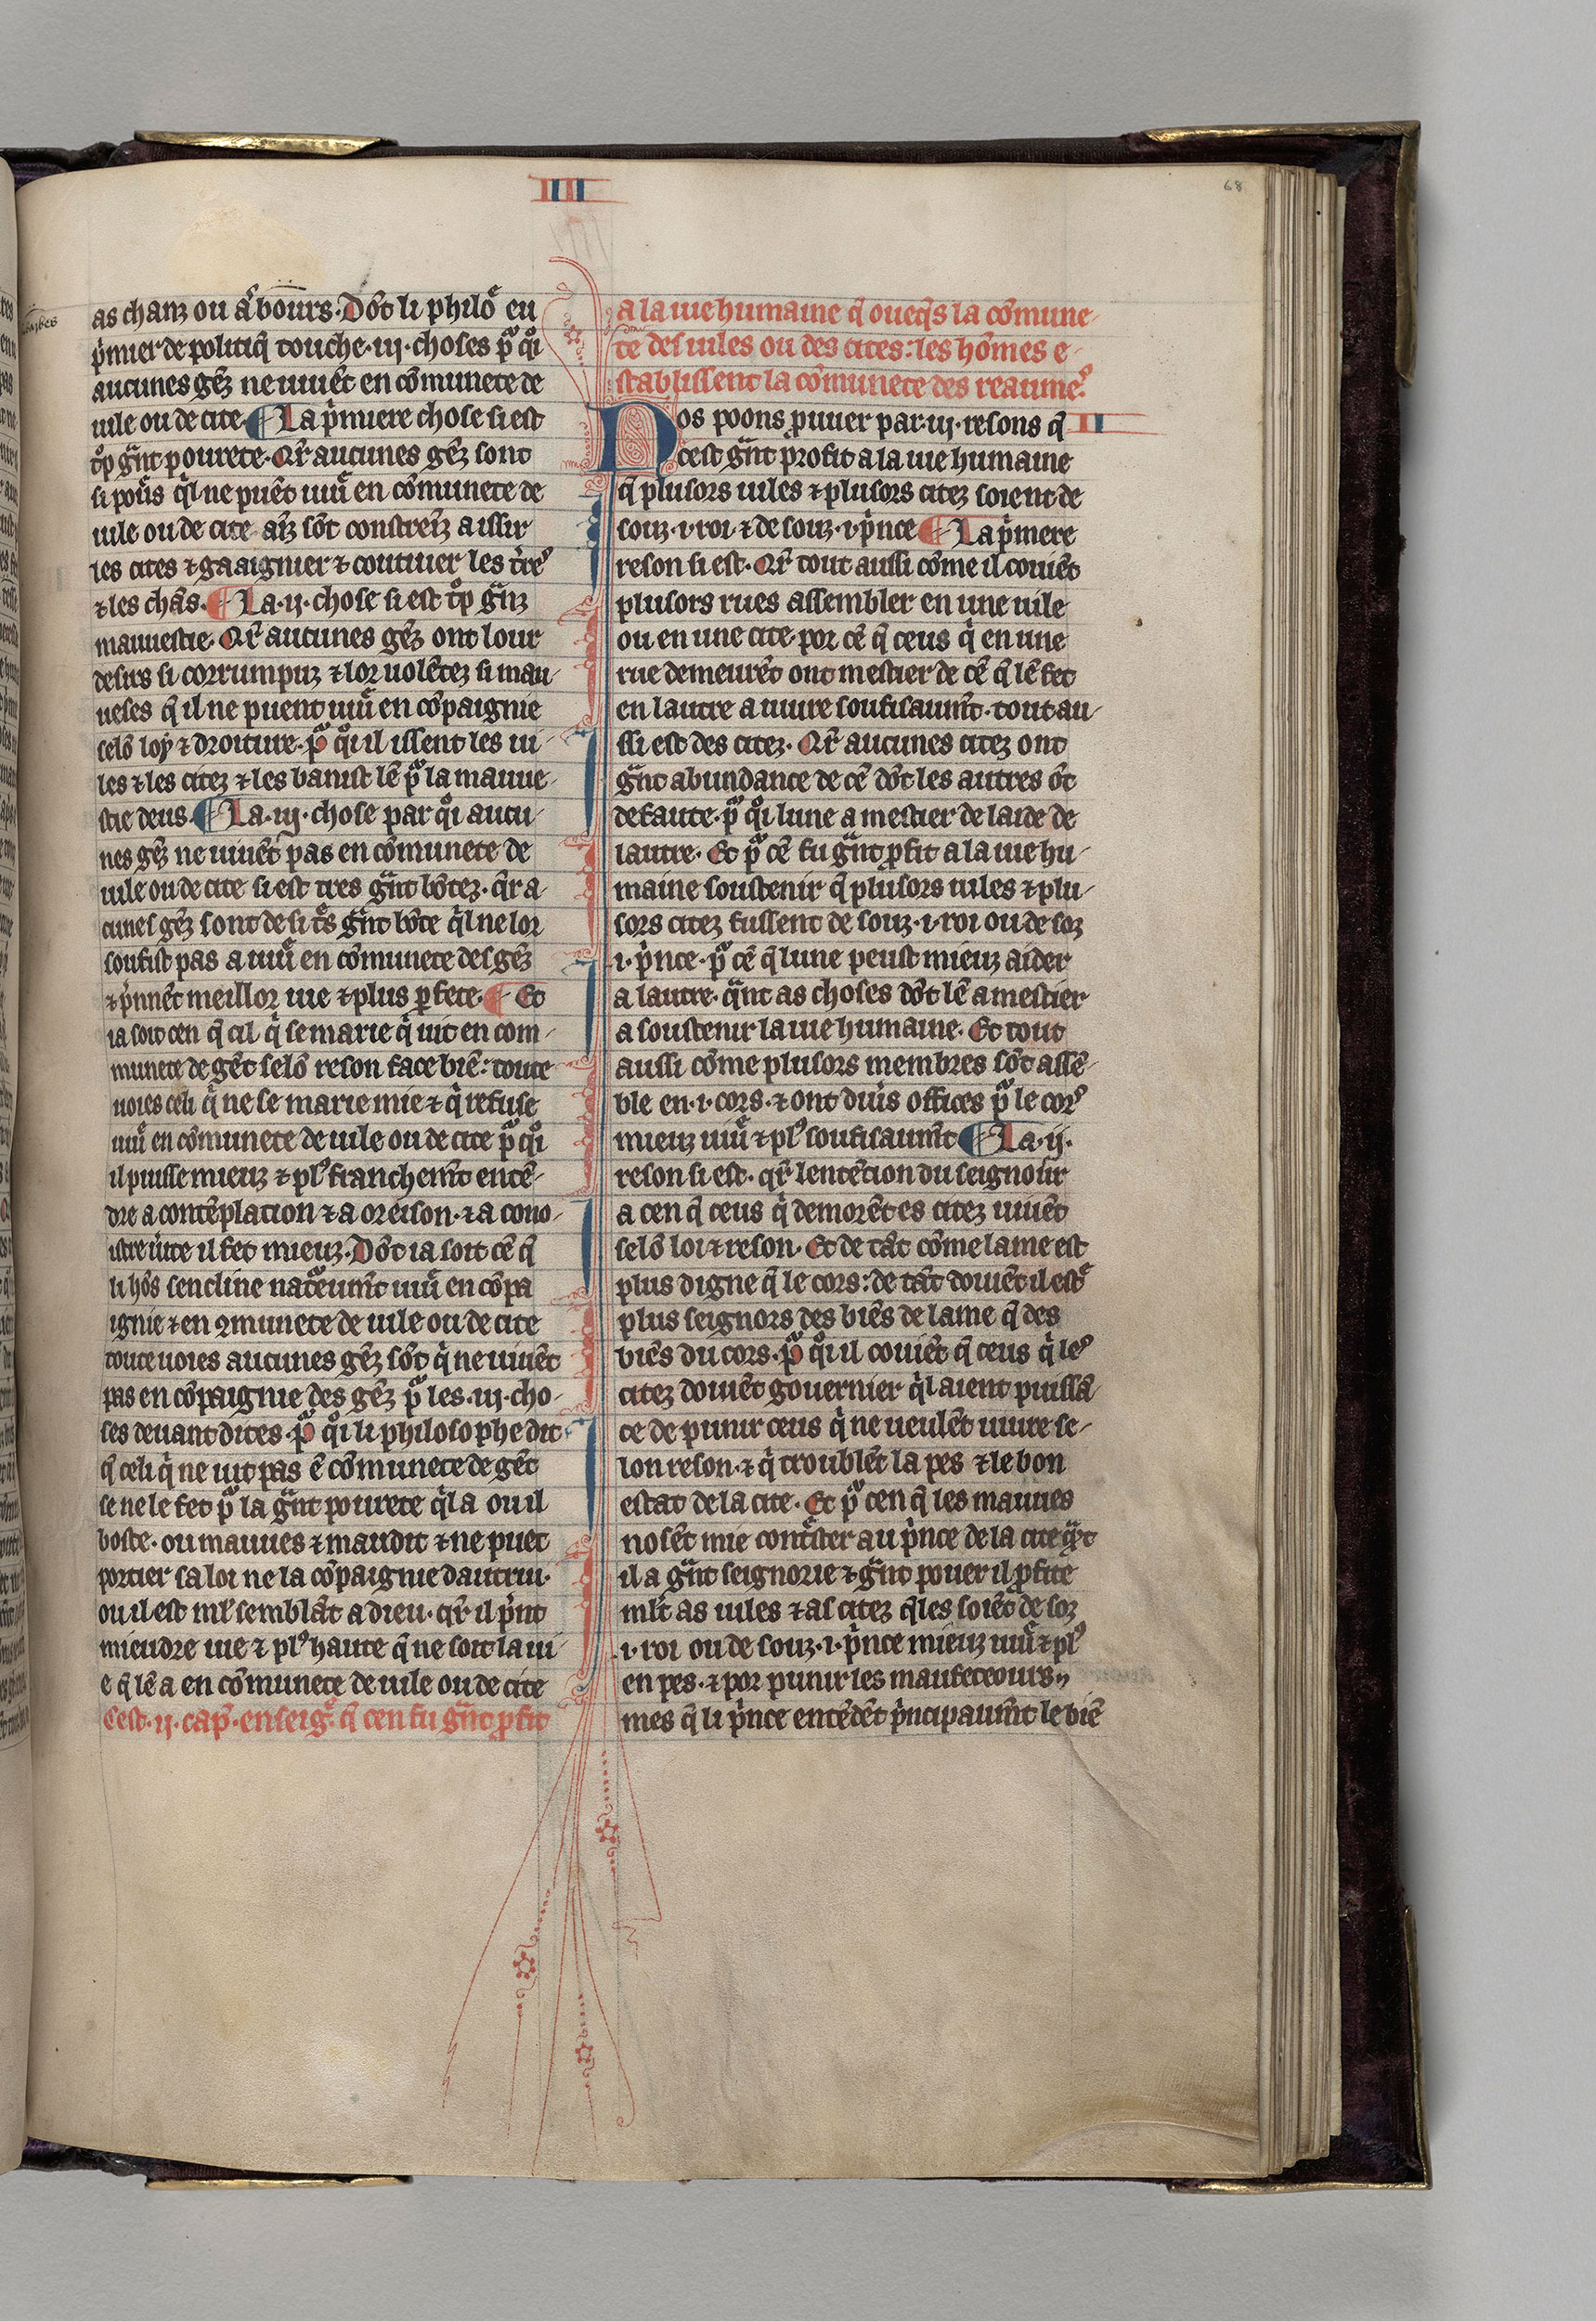 IIII
68
as chanz ou a bours. Dōt li philoˢ en
pͥmier de politiq̄ touche .iij. choses pᵒ qͦi
aucunes gēz ne uiuēt en cōmunete de
uile ou de cite. ¶ La pͥmiere chose si est
tͦp gᵃnt pourete. Qr̄ aucunes gēz sont
si poūs qͥl ne puēt uiuᵉ en cōmunete de
uile ou de cite ainz sōt constreinz a issir
les cites ⁊ gaaignier ⁊ coutiuer les tͥreˢ
⁊ les chās. ¶ La .ij. chose si est tͦp gᵃnz
mauuestie. Qr̄ aucunes gēz ont lour
desirs si corrumpuz ⁊ lor uolētez si mau-
ueses q̄ il ne puent uiuᵉ en cōpaignie
selō loy ⁊ droiture. pᵒ qͦi il issent les ui-
les ⁊ les citez ⁊ les banist lē pᵒ la mauue-
stie deus. ¶ La .iij. chose par qͦi aucu-
nes gēz ne uiuēt pas en cōmunete de
uile ou de cite si est tres gᵃnt bōtez. qr̄ a-
cunes gēz sont de si tͤs gᵃnt bōte qͥl ne lor
soufist pas a uiuᵉ en cōmunete des gēz
⁊ pͥnnēt meillor uie ⁊ plus ꝑfete. ¶ Et
ia soit cen q̄ cil qͥ se marie qͥ uit en com-
munete de gēt selō reson face biē: toute
uoies celi qͥ ne se marie mie ⁊ qͥ refuse
uiuᵉ en cōmunete de uile ou de cite pᵒ qͦi
il puisse mieuz ⁊ plˢ franchemēt entē-
dre a contēplacion ⁊ a oreison. ⁊ a cono-
istre uͥite il fet mieuz. Dōt ia soit cē q̄
li hōs sencline natᵉeumēt uiuᵉ en cōpa
ignie ⁊ en ꝯmunete de uile ou de cite
toute uoies aucunes gēz sōt qͥ ne uiuēt
pas en cōpaignie des gēz pᵒ les .iij. cho-
ses deuant dites. pᵒ qͦi li philosophe dit
q̄ celi qͥ ne uit pas ē cōmunete de gēt
se ne le fet pᵒ la gᵃnt pourete qͥl a ou il
boste. ou mauues ⁊ maudit ⁊ ne puet
portier sa loi ne la cōpaignie dautrui.
ou il est ml̄t semblāt a dieu. qr̄ il pͥnt
mieudre uie ⁊ plˢ haute q̄ ne soit la ui-
e q̄ lē a en cōmunete de uile ou de cite
Cest .ij. capͥ. enseig̅. q̄ cen fu gᵃnt ꝓfit
a la uie humaine q̄ oueq̄s la cōmune-
te des uiles ou des cites: les hōmes e-
stablissent la cōmunete des reaumeˢ.
Nos poons pruuer par .iij. resons q̄
II
cest gᵃnt profit a la uie humaine
q̄ plusors uiles ⁊ plusors citez soient de
souz .i. roi ⁊ de souz .i. pͥnce ¶ La pͥmere
reson si est. Qr̄ tout aussi cōme il couiēt
plusors rues assembler en une uile
ou en une cite. por cē q̄ ceus qͥ en une
rue demeurēt ont mestier de cē q̄ lē fet
en lautre a uiure soufisaumēt. tout au-
ssi est des citez. Qr̄ aucunes citez ont
gᵃnt abundance de cē dōt les autres ōt
defaute. pᵒ qͦi lune a mestier de laide de
lautre. Et pᵒ cē fu gᵃnt ꝓfit a la uie hu-
maine soustenir q̄ plusors uiles ⁊ plu-
sors citez fussent de souz .i. roi ou de soz
.i. pͥnce. pᵒ cē q̄ lune peust mieuz aider
a lautre. qᵃnt as choses dōt lē a mestier
a soustenir la uie humaine. Et tout
aussi cōme plusors membres sōt assē-
ble en .i. cors. ⁊ ont diuͥs offices pᵒ le corˢ
mieuz uiuᵉ ⁊ plˢ soufisaumēt ¶ La .ij.
reson si est. qr̄ lentēcion du seignour
a cen q̄ ceus qͥ demorēt es citez uiuēt
selō loi ⁊ reson. Et de tāt cōme lame est
plus digne q̄ le cors: de tāt doiuēt il estᵉ
plus seignors des biēs de lame q̄ des
biēs du cors. pᵒ qͦi il couiēt q̄ ceus qͥ leˢ
citez doiuēt gouernier qͥl aient puissā-
ce de punir ceus qͥ ne ueulēt uiure se-
lon reson. ⁊ qͥ troublēt la pes ⁊ le bon
estat de la cite. Et pᵒ cen q̄ les mauues
nosēt mie contͬster au pͥnce de la cite qᵃt
il a gᵃnt seignorie ⁊ gᵃnt pouer il ꝓfite
ml̄t as uiles ⁊ as citez qͥles soiēt de soz
.i. roi ou de souz .i. pͥnce mieuz uiuᵉ ⁊ plˢ
en pes. ⁊ por punir les maufeteours
mes q̄ li pͥnce entēdēt pͥncipaumēt le biē